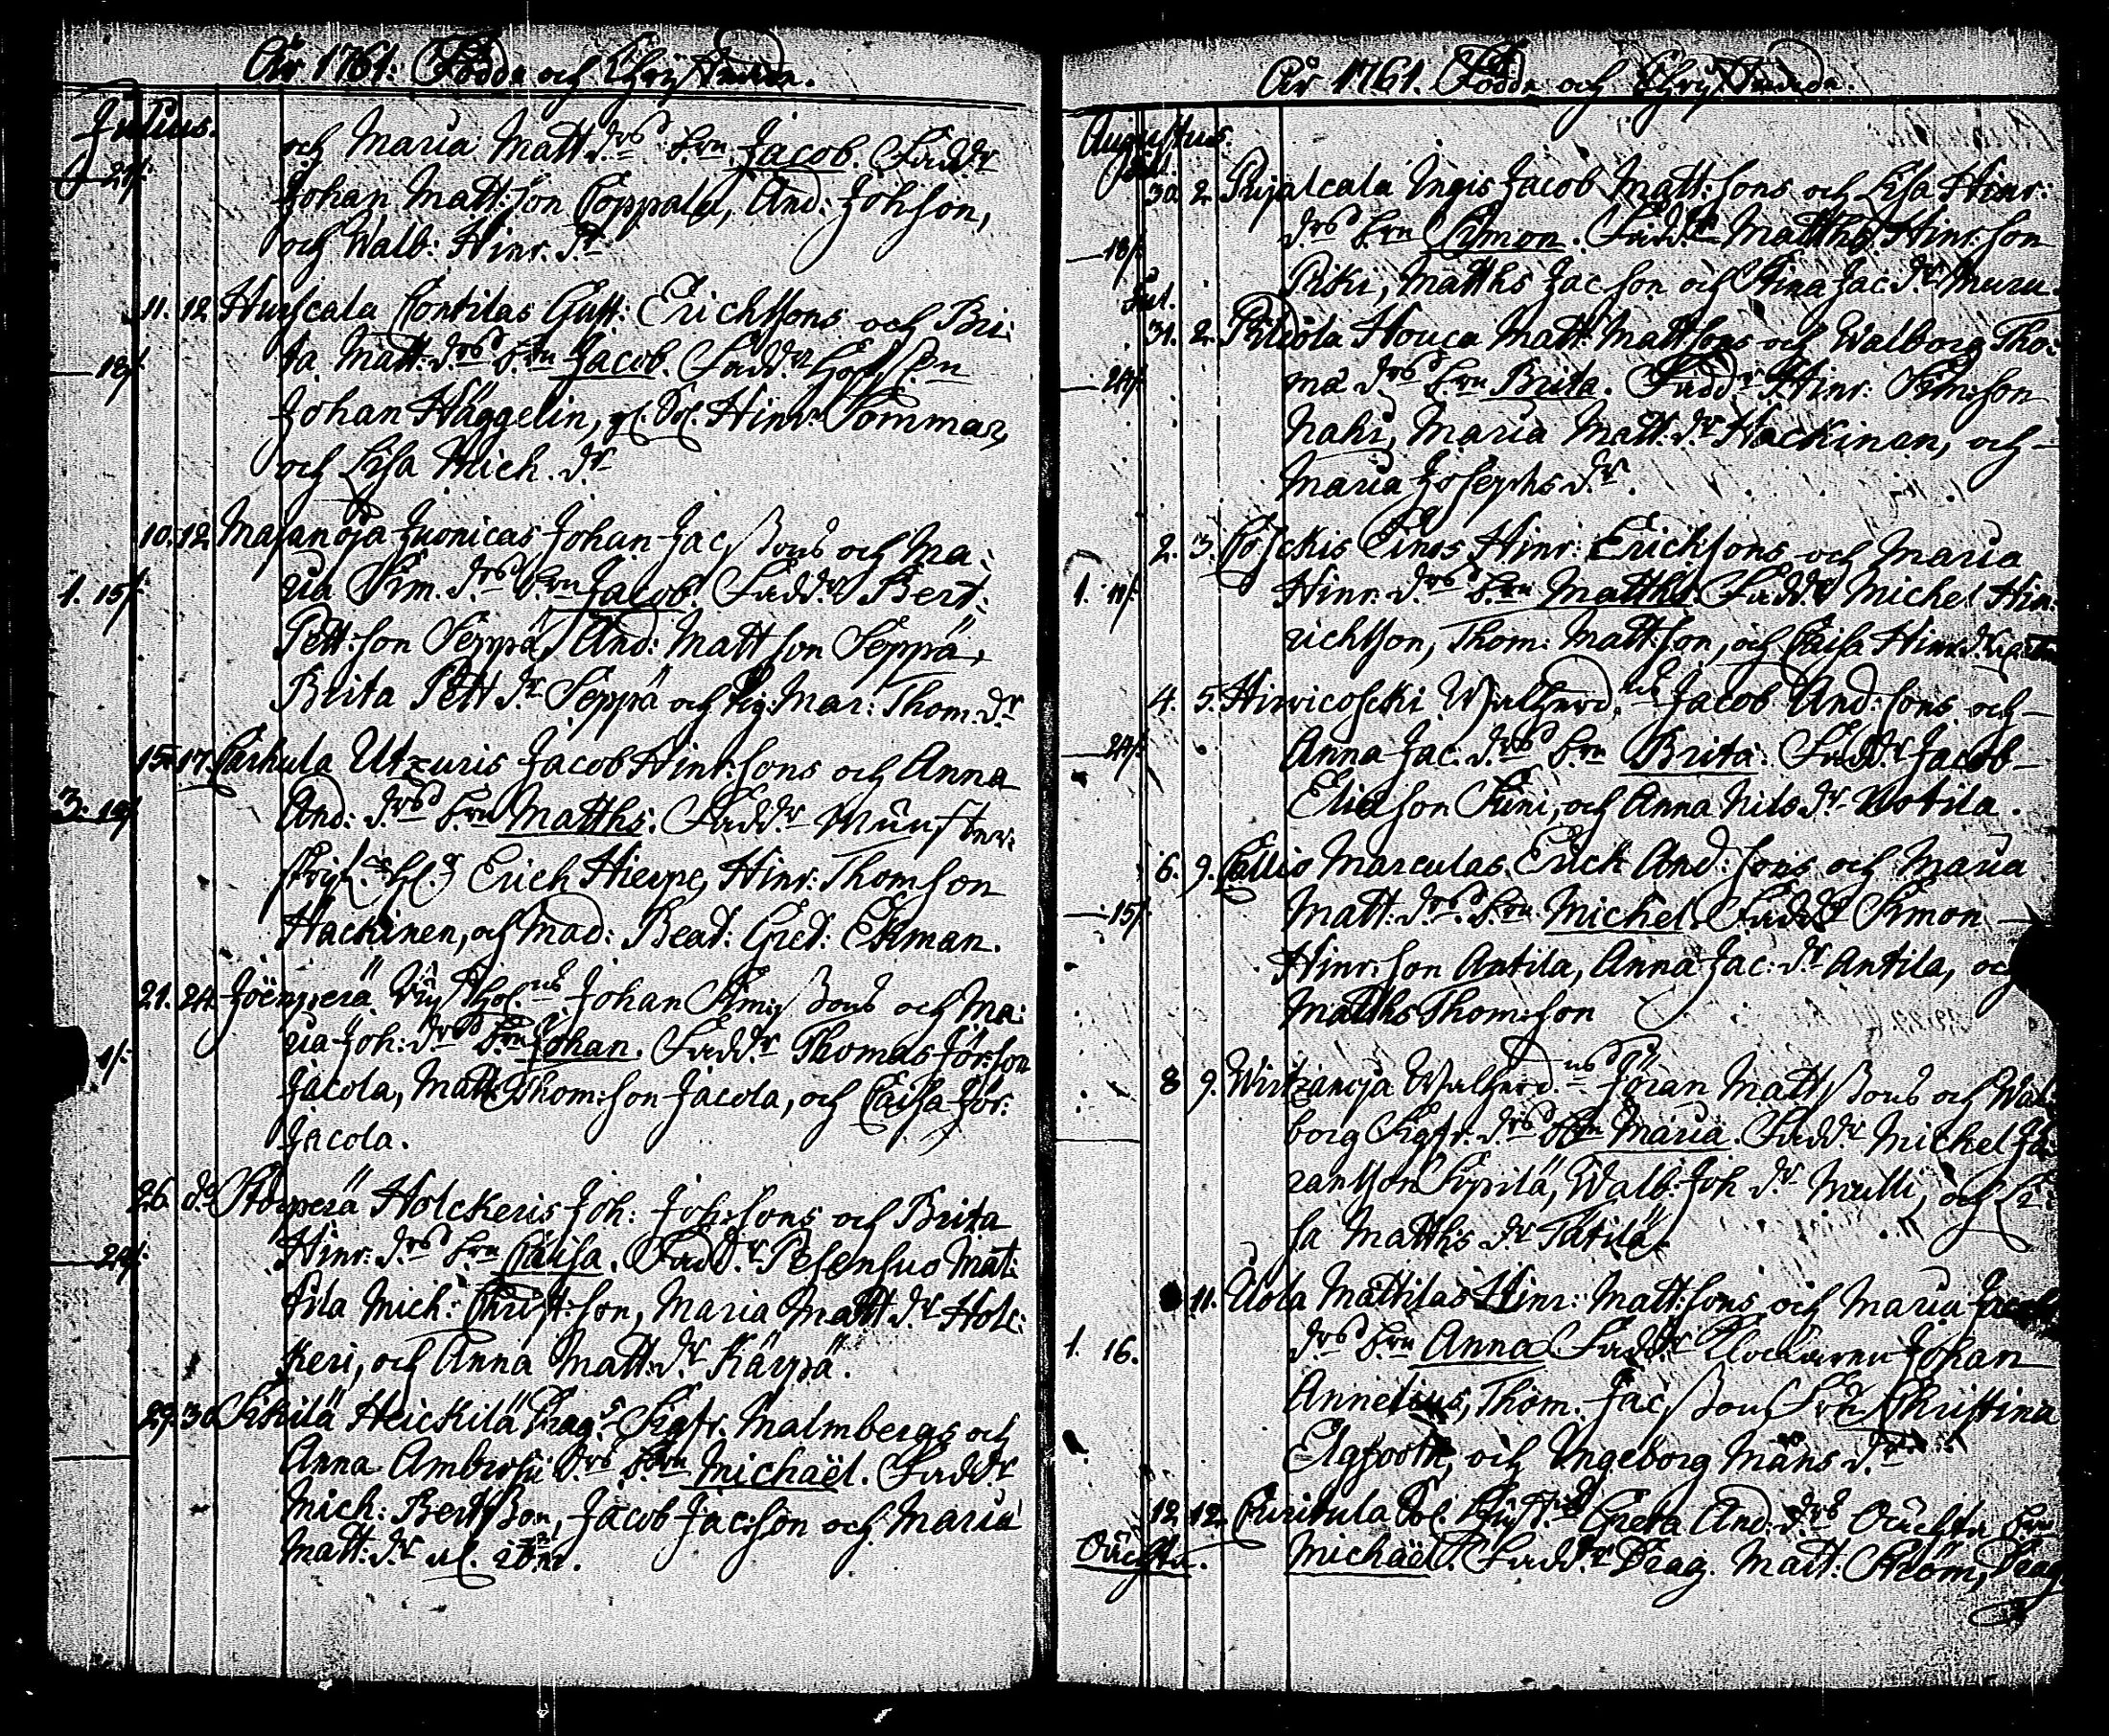 År 1761: Födde och Christnade.
Julius.
och Maria Matt.drs b:rn Jacob. Fadd:r
24/:
Johan Matt:son Coppala, And: Johson,
och Walb: Hinr. dr
11. 12. Hurscala Contilas Gust: Erichssons och Bri:
18/:
ta Matt:drs b:rn Jacob. Fadd:r
Johan Häggelin, Hinr: Sommar,
och Lisa Mich. dr
10. 12. Majanoja Juonicas Johan Jac:ssons och Ma:
1. 15/:
ria Sim. drs b:rn Jacob. Fadd:r Bert:
Pett:son Seppä, And: Mattson Seppä,
Brita Pett dr Seppä och Pig: Mar: Thom. dr
15. 17. Carhula Utzuris Jacob Hinr:sons och Anna
3. 18/:
And: drs b:rn Matths. Fadd:r Münster
Erich Hierpe, Hinr: Thomson
Hackinen, och Mad: Beat: Gret: Ekman.
21. 24. Johan Sim:ssons och Ma:
1/:
ria Joh: drs b:rn Johan. Fadd:r Thomas Jör:son
Jacola, Matt: Thom:son Jacola, och Caisa Jör:
Jacola.
26. do Holckeris Joh: Joh:sons och Brita
24/:
Hinr: drs b:rn Caisa. Fadd:r Pesensuo Mat:
tila Mich: Christ:son, Maria Matt: dr Hol:
keri, och Anna Matt: dr Kärpä.
29. 30. Sikilä Heickilä Drag:s Sigfr. Malmbergs och
Anna Ambrosii drs b:rn Michaël. Fadd:r
Mich: Bertsson, Jacob Jac:son och Maria
Matt: dr
År 1761. Födde och Christnade.
Augustus.
Jul.
30. 2. Pujalcala Ingis Jacob Matt:sons och Lisa Hinr:
18/:
drs b:rn Simon. Fadd:r Matths Hinr:son
Piki, Matths Jacson och Stina Jac: dr Muru.
Jul.
31. 2. Houca Matt: Mattsons och Walborg Tho:
24/:
ma drs b:rn Brita. Fadd:r Hinr: Sim:son
Nahi, Maria Matt: dr Hackinan, och
Maria Josephs dr.
2. 3. Einos Hinr: Ericksons och Maria
1. 11/:
Hinr. drs b:rn Matths. Fadd:r Michel Hin:
richsson, Thom: Matt:son, och Caisa Hinr. dr
4. 5. Hinricoscki Jacob And:sons och
24/:
Anna Jac. drs b:rn Brita. Fadd:r Jacob
Eliæson Suni, och Anna Nils dr Uotila.
6. 9. Callio Marculas Erich And:sons och Maria
15/:
Matt: drs. b:rn Michel. Fadd:r Simon
Hinr:son Antila, Anna Jac: dr Antila, och
Matths Thom:son
8 9. Wirtzanoja Jöran Matt:ssons och Wal:
borg Sigfr. drs b:rn Maria. Fadd:r Michel Jö
ransson Sipilä, Walb: Joh dr Mulli, och Li:
sa Matths dr Tätilä.
11. Uota Mattilas Hinr: Matt:sons och Maria Jacobs
1 16.
drs b:rn Anna. Fadd:r Klockaren Johan
Annelius, Thom: Jac:sson, Christina
Elgfooth, och Ingeborg Måns dr
12. 12. Greta And: drs Oächta b:rn
Oächta.
Michaël. Fadd:r Drag. Matt: Ström, Drag